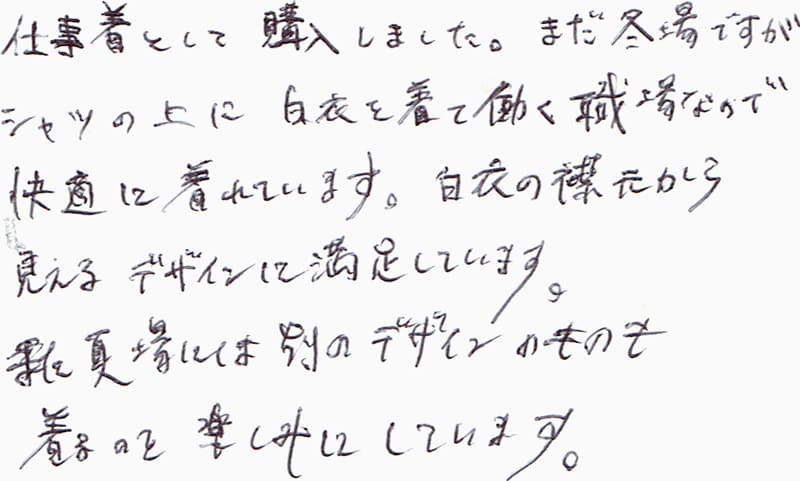 仕事着として購入しました。まだ冬場ですが
シャツの上に白衣を着て働く職場なので
快適に着れています。白衣の襟元から
見えるデザインに満足しています。
夏場には別のデザインのものも
着るのを楽しみにしています。